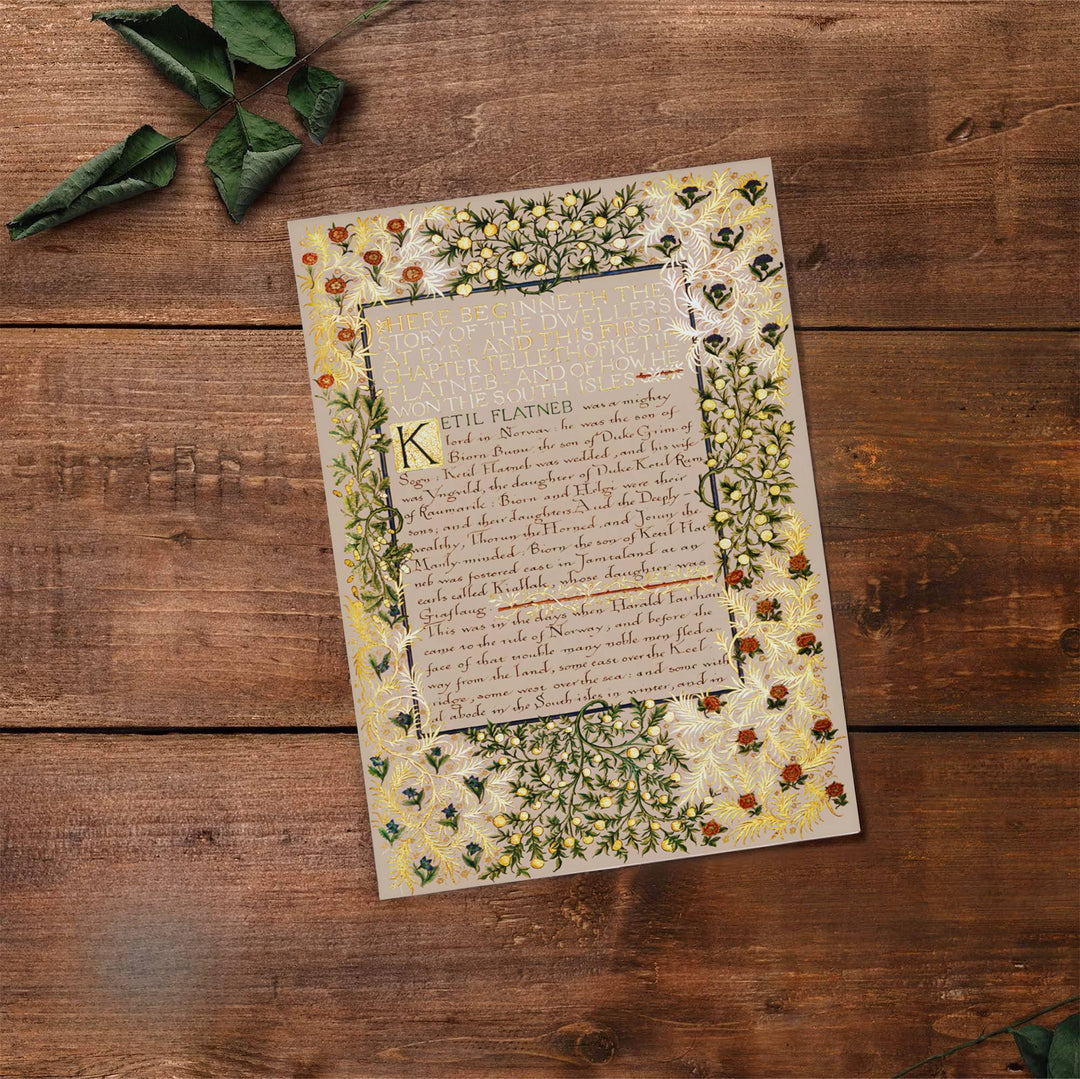 HERE BEGINNETH THE
STORY OF THE DWELLERS
AT EYR: AND THIS FIRST
CHAPTER TELLETH OF KETIL
FLATNEB, AND OF HOW HE
WON THE SOUTH ISLES
KETIL FLATNEB was a mighty
lord in Norway: he was the son of
Biorn Bunu, the son of Duke Grim of
Sogn: Ketil Flatneb was wedded, and his wife
was Yngvild, the daughter of Duke Ketil Ram
of Raumarik: Biorn and Helgi were their
sons; and their daughters Aud the Deeply-
wealthy, Thorun the Horned, and Jorun the
Manly-minded. Biorn the son of Ketil Flat
neb was fostered east in Jamtaland at an
earls called Kiallak, whose daughter was
Giaflaug:
This was in the days when Harald Fairhair
came to the rule of Norway, and before the
face of that trouble many noble men fled a
way from the land, some east over the Keel
ridge, some west over the sea: and some with
al abode in the South isles in winter, and in